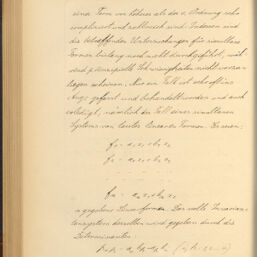 einer Form von höherer als der 2. Ordnung sehr
compliciert und milhreich sind. Indessen sind
die betreffenden Untersuchungen für simultane
Formen bislang noch nicht durchgeführt, wäh-
rend principielle Schwierigkeiten nicht vorzu-
liegen scheinen. Nur ein Fall ist schon öfters
ins Auge gefasst und behandelt worden und auch
erledigt, nämlich der Fall eines simultanen
Systems von lauter linearen Formen. Es seien:
f₁ = a₁ x₁ + b₁ x₂
f₂ =
fₙ = aₙ x₁ + bₙ x₂
n gegebene Linearformen. Das volle Invarian-
tensystem derselben wird gegeben durch die
Determinanten